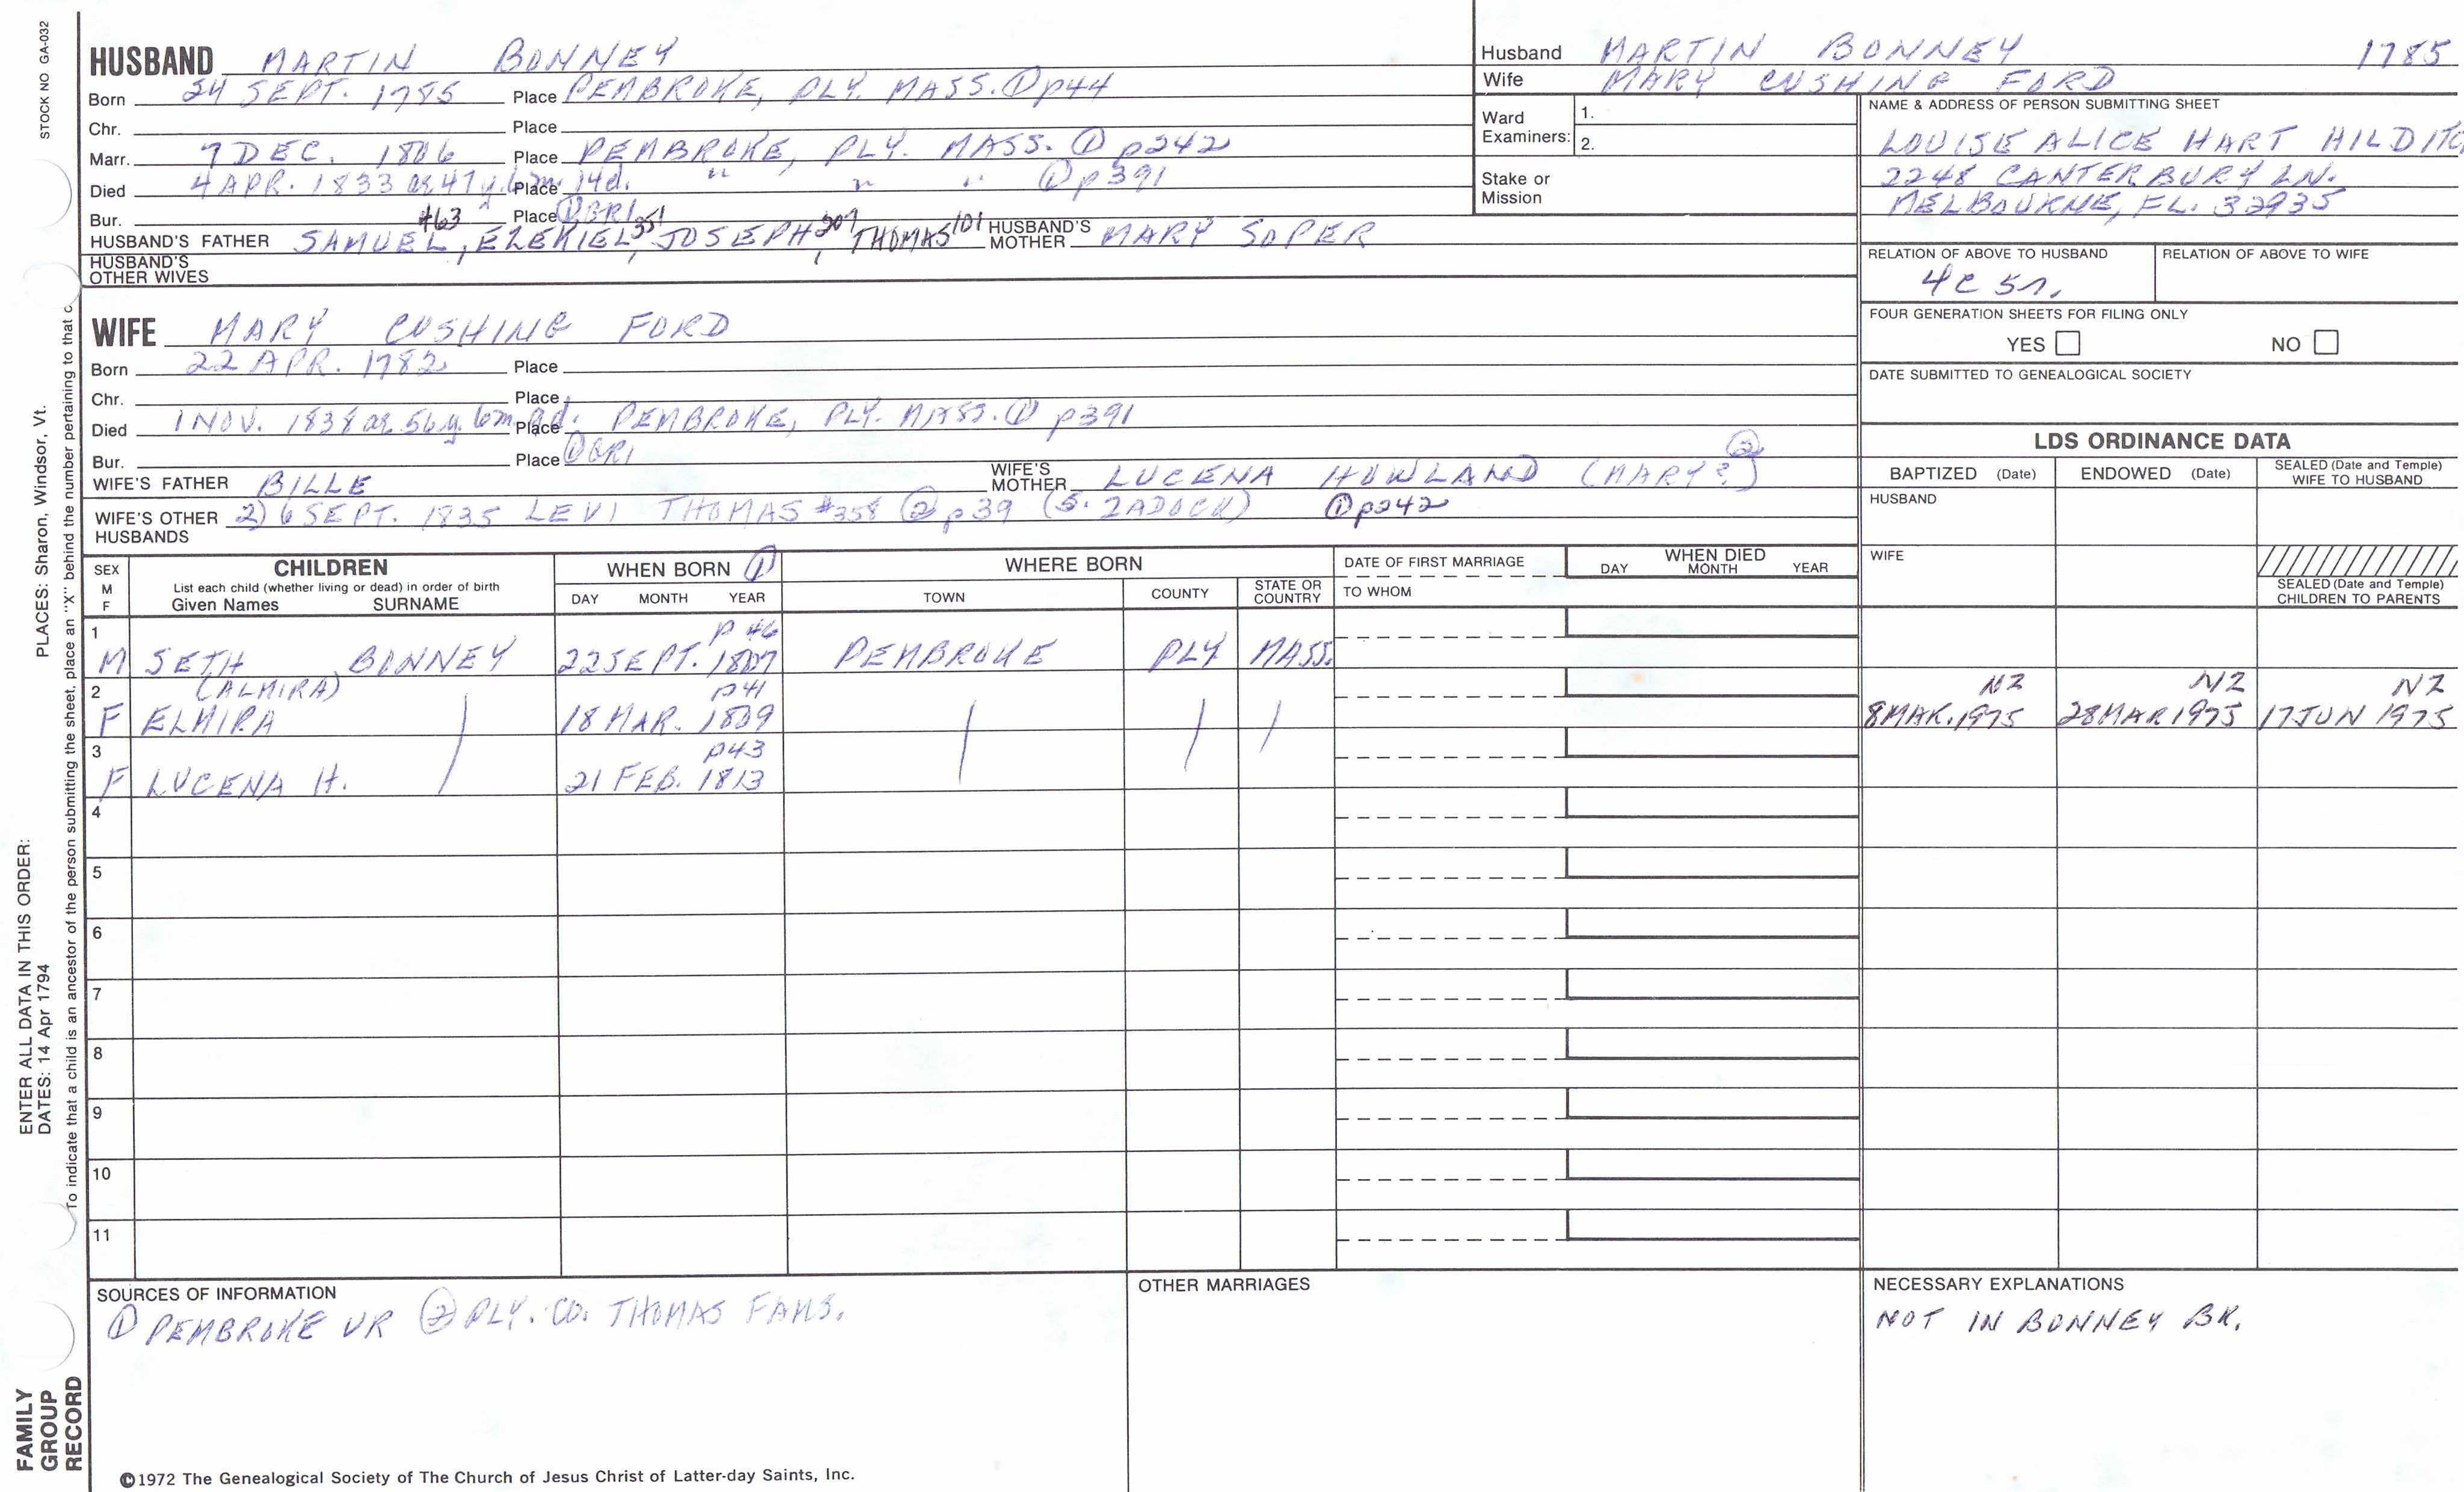 STOCK NO GA-032
HUSBAND MARTIN BONNEY
Born 24 SEPT. 1785 Place PEMBROKE, PLY. MASS. ① p44
Chr. Place
Marr. 7 DEC. 1806 Place PEMBROKE, PLY. MASS. ① p242
Died 4 APR. 1833 ae 47y. 6m. 14d. Place " " " ① p391
Bur. Place ① GR1
HUSBAND'S FATHER SAMUEL #63, EZEKIEL 351, JOSEPH 207, THOMAS 101 HUSBAND'S MOTHER MARY SOPER
HUSBAND'S OTHER WIVES
Husband MARTIN BONNEY 1785
Wife MARY CUSHING FORD
Ward Examiners: 1.
2.
Stake or Mission
NAME & ADDRESS OF PERSON SUBMITTING SHEET
LOUISE ALICE HART HILDITC
2248 CANTERBURY LN.
MELBOURNE, FL. 32935
RELATION OF ABOVE TO HUSBAND RELATION OF ABOVE TO WIFE
4C 5r.
FOUR GENERATION SHEETS FOR FILING ONLY
YES NO
DATE SUBMITTED TO GENEALOGICAL SOCIETY
WIFE MARY CUSHING FORD
Born 22 APR. 1782 Place
Chr. Place
Died 1 NOV. 1838 ae 56y. 6m. 9d. Place PEMBROKE, PLY. MASS. ① p391
Bur. Place ① GR1
WIFE'S FATHER BILLE WIFE'S MOTHER LUCENA HOWLAND (MARY? ②)
WIFE'S OTHER HUSBANDS 2) 6 SEPT. 1835 LEVI THOMAS #358 ② p39 (S. ZADOCK) ① p242
LDS ORDINANCE DATA
BAPTIZED (Date) ENDOWED (Date) SEALED (Date and Temple) WIFE TO HUSBAND
HUSBAND
WIFE
SEALED (Date and Temple) CHILDREN TO PARENTS
SEX M F
CHILDREN
List each child (whether living or dead) in order of birth
Given Names SURNAME
WHEN BORN ①
DAY MONTH YEAR
WHERE BORN
TOWN COUNTY STATE OR COUNTRY
DATE OF FIRST MARRIAGE
TO WHOM
WHEN DIED
DAY MONTH YEAR
1 p46
M SETH BONNEY 22 SEPT. 1807 PEMBROKE PLY MASS.
2 (ALMIRA) p41 NZ NZ NZ
F ELMIRA 18 MAR. 1809 8 MAR. 1975 28 MAR 1975 17 JUN 1975
3 p43
F LUCENA H. 21 FEB. 1813
4
5
6
7
8
9
10
11
SOURCES OF INFORMATION
① PEMBROKE VR ② PLY. CO. THOMAS FAMS.
OTHER MARRIAGES
NECESSARY EXPLANATIONS
NOT IN BONNEY BK.
©1972 The Genealogical Society of The Church of Jesus Christ of Latter-day Saints, Inc.
FAMILY GROUP RECORD
ENTER ALL DATA IN THIS ORDER:
DATES: 14 Apr 1794
PLACES: Sharon, Windsor, Vt.
To indicate that a child is an ancestor of the person submitting the sheet, place an "X" behind the number pertaining to that c